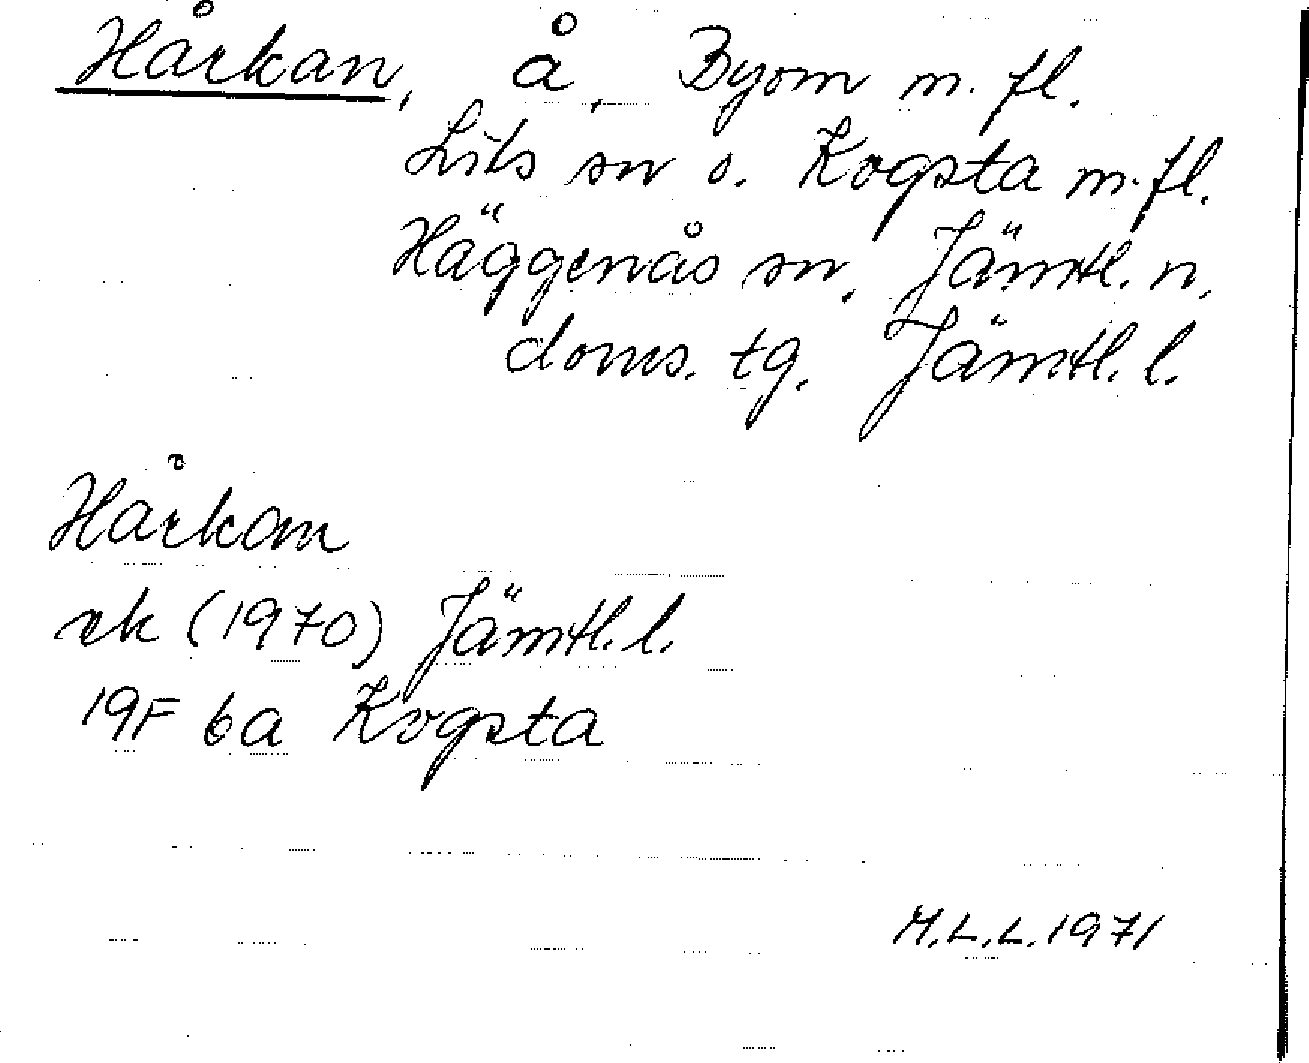 Hårkan, å, Byom m. fl.
Lits sn o. Kogsta m. fl.
Häggenås sn, Jämtl. n.
doms. tg. Jämtl. l.
Hårkan
ek (1970) Jämtl. l.
19F 6a Kogsta
M.L.L. 1971